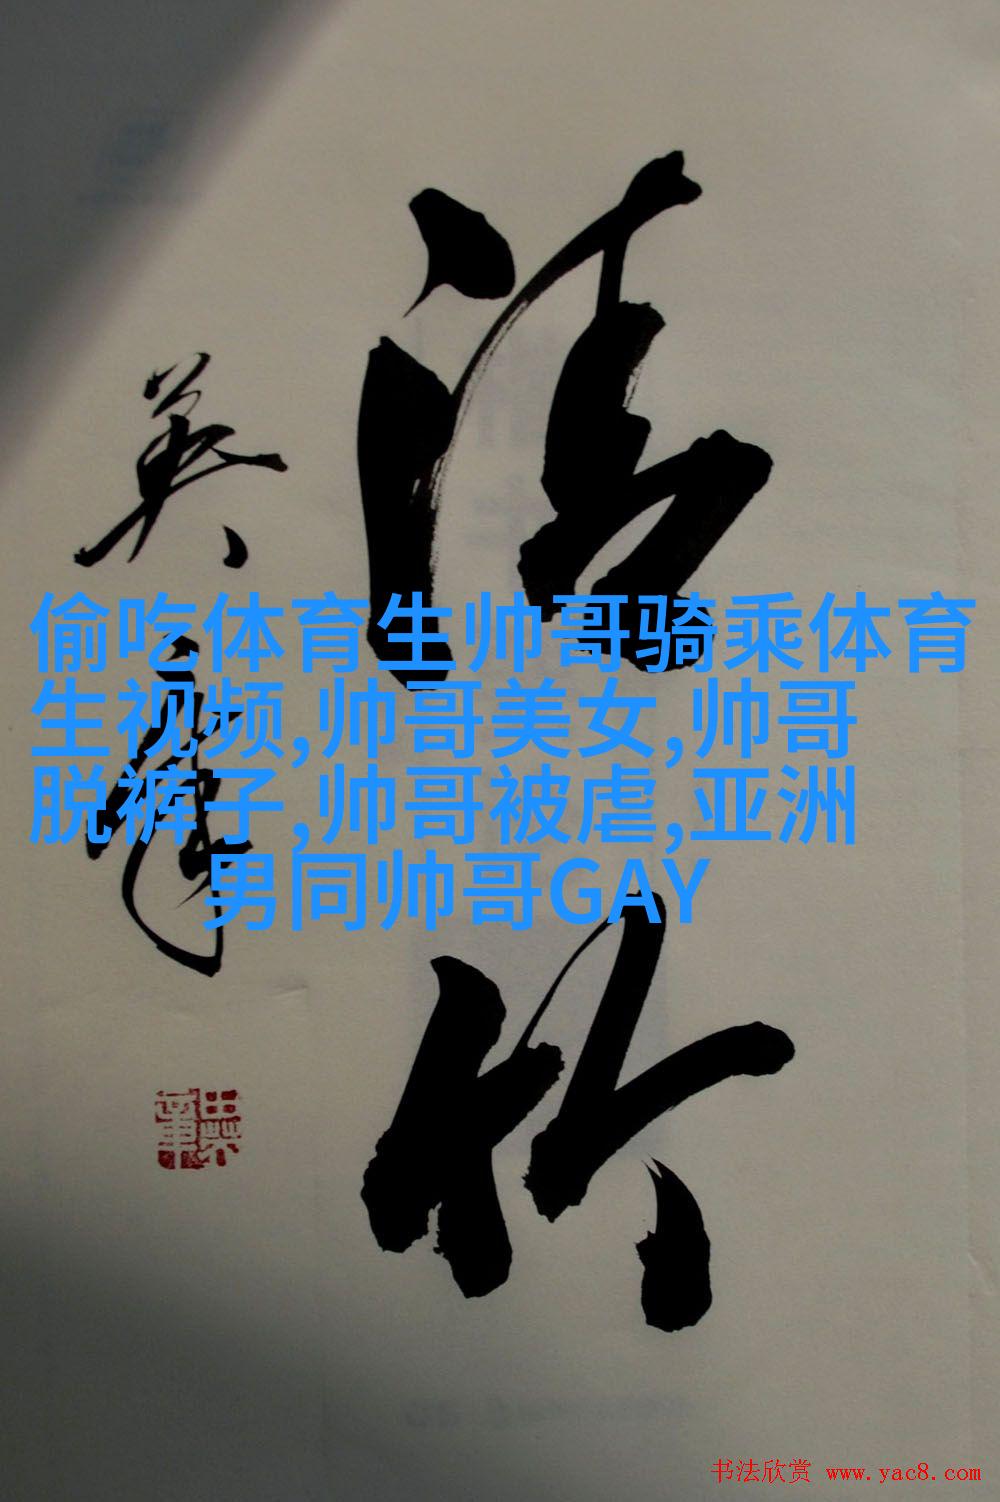 清竹
英章
偷吃体育生帅哥骑乘体育
生视频,帅哥美女,帅哥
脱裤子,帅哥被虐,亚洲
男同帅哥GAY
书法欣赏 www.yac8.com